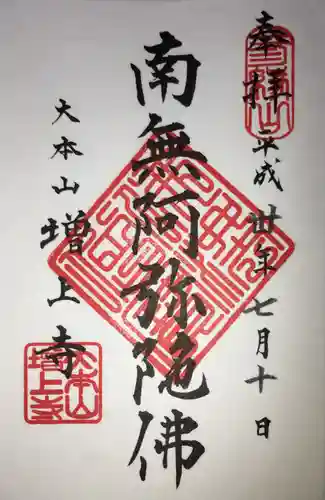 奉拝
平成卅年七月十日
南無阿弥陀佛
大本山
増上寺
大本山
増上寺